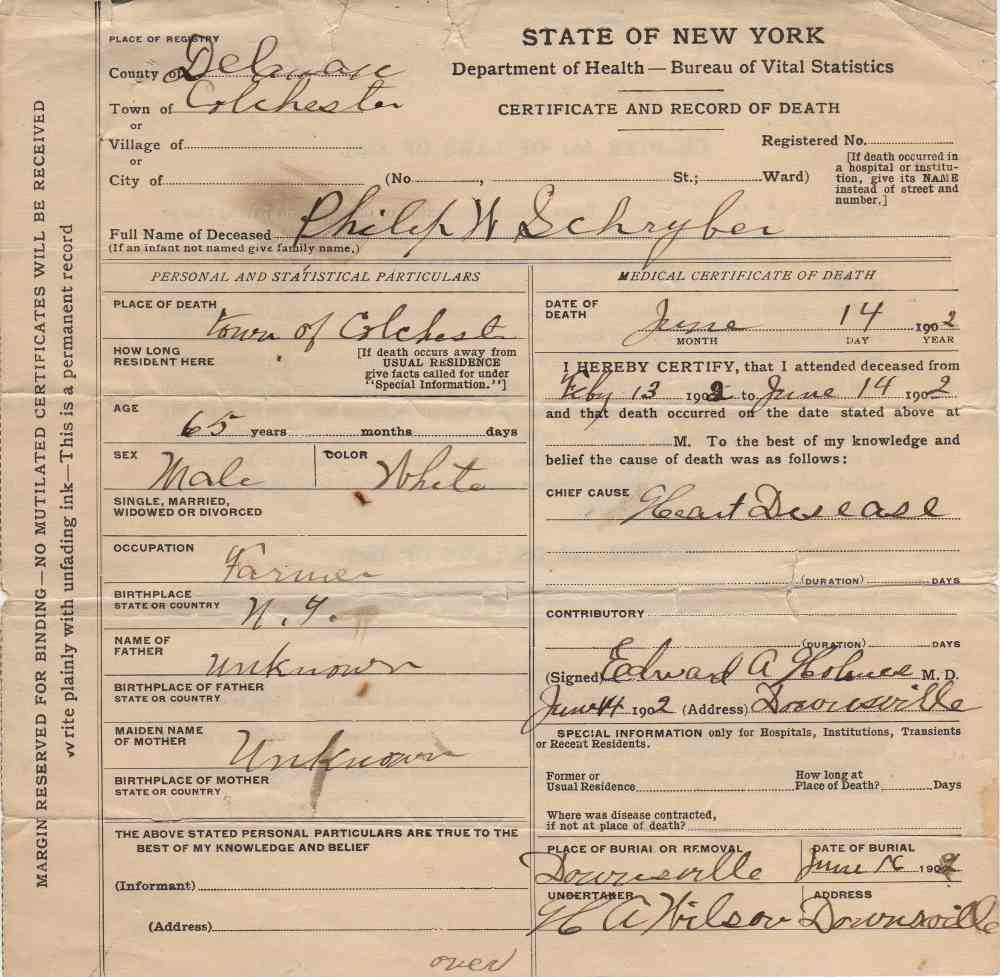 MARGIN RESERVED FOR BINDING—NO MUTILATED CERTIFICATES WILL BE RECEIVED
Write plainly with unfading ink—This is a permanent record
PLACE OF REGISTRY
County of Delaware
Town of Colchester
or
Village of
or
City of
STATE OF NEW YORK
Department of Health — Bureau of Vital Statistics
CERTIFICATE AND RECORD OF DEATH
Registered No.
[If death occurred in
a hospital or institu-
tion, give its NAME
instead of street and
number.]
(No. , St.; Ward)
Full Name of Deceased Philip W Schryber
(If an infant not named give family name.)
PERSONAL AND STATISTICAL PARTICULARS
PLACE OF DEATH
town of Colchest
HOW LONG
RESIDENT HERE
[If death occurs away from
USUAL RESIDENCE
give facts called for under
"Special Information."]
AGE
65 years months days
SEX Male COLOR White
SINGLE, MARRIED,
WIDOWED OR DIVORCED
OCCUPATION
Farmer
BIRTHPLACE
STATE OR COUNTRY N.Y.
NAME OF
FATHER
Unknown
BIRTHPLACE OF FATHER
STATE OR COUNTRY
MAIDEN NAME
OF MOTHER
Unknown
BIRTHPLACE OF MOTHER
STATE OR COUNTRY
THE ABOVE STATED PERSONAL PARTICULARS ARE TRUE TO THE
BEST OF MY KNOWLEDGE AND BELIEF
(Informant)
(Address)
MEDICAL CERTIFICATE OF DEATH
DATE OF
DEATH
June 14 1902
MONTH DAY YEAR
I HEREBY CERTIFY, that I attended deceased from
Feby 13 1902 to June 14 1902
and that death occurred on the date stated above at
M. To the best of my knowledge and
belief the cause of death was as follows:
CHIEF CAUSE Heart Disease
(DURATION) DAYS
CONTRIBUTORY
(DURATION) DAYS
(Signed) Edward A Holmes M. D.
June 14 1902 (Address) Downsville
SPECIAL INFORMATION only for Hospitals, Institutions, Transients
or Recent Residents.
Former or
Usual Residence
How long at
Place of Death? Days
Where was disease contracted,
if not at place of death?
PLACE OF BURIAL OR REMOVAL
Downsville
DATE OF BURIAL
June 16 1902
UNDERTAKER
H A Wilson
ADDRESS
Downsville
over